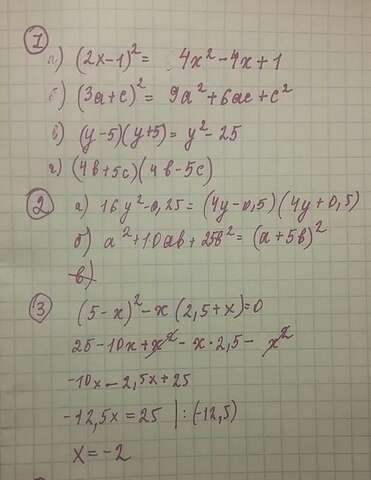 1
а) (2x-1)² = 4x² - 4x + 1
б) (3a+c)² = 9a² + 6ac + c²
в) (y-5)(y+5) = y² - 25
г) (4b+5c)(4b-5c)
2 а) 16y² - 0,25 = (4y-0,5)(4y+0,5)
б) a² + 10ab + 25b² = (a+5b)²
в)
3
(5-x)² - x(2,5+x) = 0
25 - 10x + x² - x·2,5 - x²
-10x - 2,5x + 25
-12,5x = 25 | : (-12,5)
x = -2